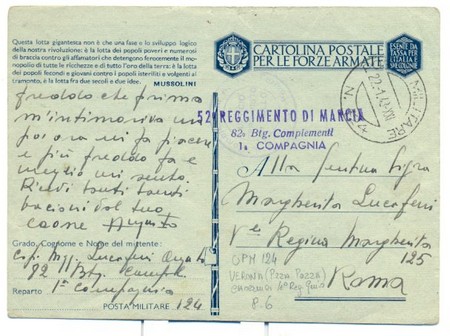 Questa lotta gigantesca non è che una fase e lo sviluppo logico
della nostra rivoluzione: è la lotta dei popoli poveri e numerosi
di braccia contro gli affamatori che detengono ferocemente il mo-
nopolio di tutte le ricchezze e di tutto l'oro della terra: è la lotta
dei popoli fecondi e giovani contro i popoli isteriliti e volgenti al
tramonto, è la lotta fra due secoli e due idee.
MUSSOLINI
freddo che prima
m'intimoriva un
poco ora mi fa piacere
e più freddo fa e
meglio mi sento.
Ricevi tanti tanti
bacioni dal tuo
Augusto
Grado, Cognome e Nome del mittente:
82 Btg.
Reparto 1ª Compagnia
POSTA MILITARE 124
CARTOLINA POSTALE
PER LE FORZE ARMATE
ESENTE DA
TASSA PER
MILITARE
22.1.42.XX
52° REGGIMENTO DI MARCIA
82° Btg. Complementi
1a COMPAGNIA
Alla Gentma Sigra
Margherita
Vle Regina Margherita
125
Roma
UPM 124
VERONA
8-6